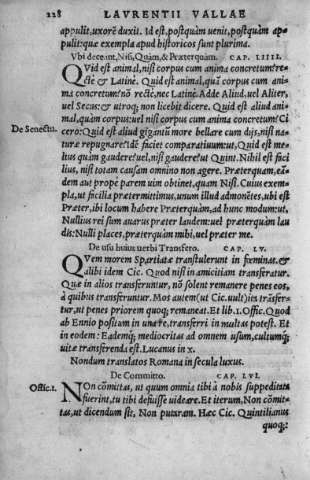 228 LAVRENTII VALLAE
appulit, uxorē duxit. Id est, postquàm uenit, postquàm ap=
pulit: quæ exempla apud historicos sunt plurima.
Vbi deceant, Nisi, Quàm, & Præterquàm. CAP. LIIII.
QVid est animal, nisi corpus cum anima concretum? re=
ctè & Latinè. Quid est animal, quā corpus cum ani=
ma concretum? nō rectè, nec Latinè. Adde Aliud. uel Aliter,
uel Secus: & utroq; non licebit dicere. Quid est aliud ani=
mal, quàm corpus: uel nisi corpus cum anima concretum? Ci
De Senectu. cero: Quid est aliud gigantū more bellare cum dijs, nisi na=
turæ repugnare? idē faciet comparatiuum: ut, Quid est me=
lius quàm gaudere? uel, nisi gaudere? ut Quint. Nihil est faci
lius, nisi totam causam omnino non agere. Præterquàm, eā=
dem aut propè parem uim obtinet, quàm Nisi. Cuius exem=
pla, ut facilia prætermittimus, unum illud admonētes, ubi est
Præter, ibi locum habere Præterquàm, ad hunc modum: ut,
Nullius rei sum auarus præter laudem: uel præterquàm lau
dis: Nulli places, præterquàm mihi, uel præter me.
De usu huius uerbi Transfero. CAP. LV.
QVem morem Spartiatæ transtulerunt in fœminas. &
alibi idem Cic. Quod nisi in amicitiam transferatur.
Quæ in alios transferuntur, nō solent remanere penes eos,
à quibus transferuntur. Mos autem (ut Cic. uult) ites trāsfer=
tur, ut penes priorem quoq; remaneat. Et lib. 1. Offic. Quod
ab Ennio positam in una re, transferri in multas potest. Et
in eodem: Eademq; mediocritas ad omnem usum, cultumq;
uitæ transferenda est. Lucanus in x.
Nondum translatos Romana in secula luxus.
De Committo. CAP. LVI.
Offic. 1. NOn cōmittas, ut quum omnia tibi à nobis suppeditata
fuerint, tu tibi defuisse uideare. Et iterum, Non cōmit=
tas, ut dicendum sit, Non putaram. Hæc Cic. Quintilianus
quoq;